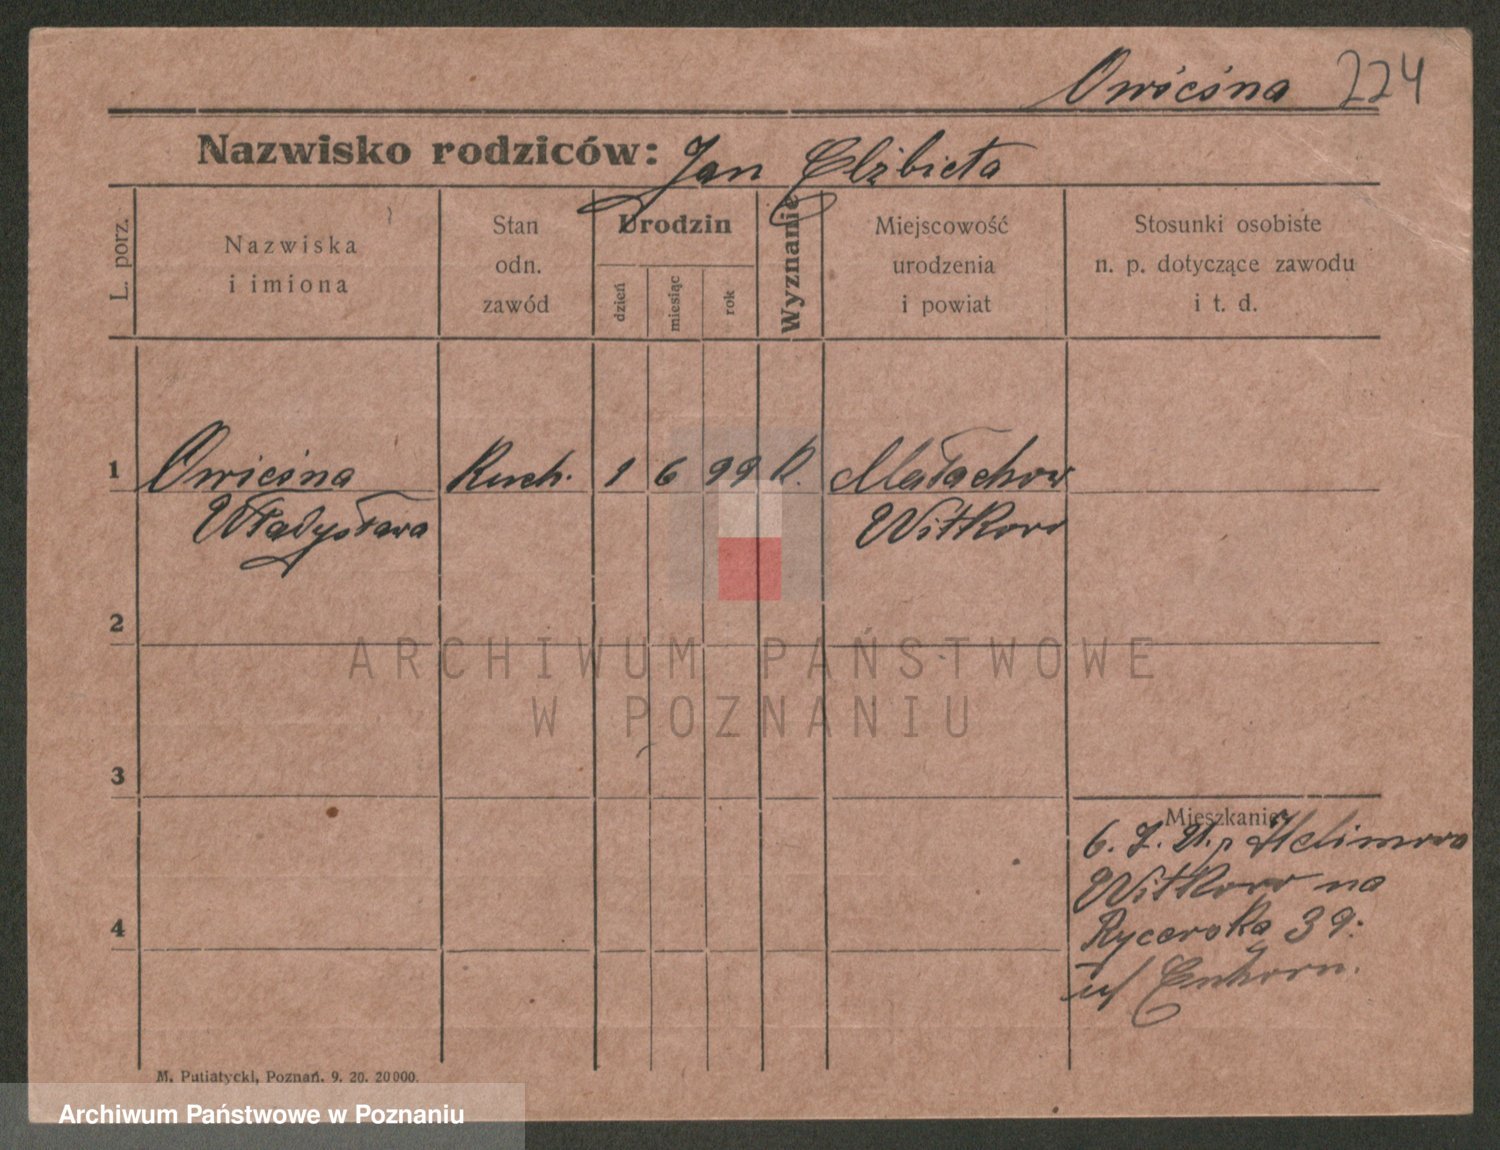 Owicśna 224
Nazwisko rodziców: Jan Elżbieta
L. porz.
Nazwiska
i imiona
Stan
odn.
zawód
Urodzin
dzień
miesiąc
rok
Wyznanie
Miejscowość
urodzenia
i powiat
Stosunki osobiste
n. p. dotyczące zawodu
i t. d.
1 Owicśna Kuch. 1 6 99 K. Małachow
Władysława Witkowo
2
3
4
Mieszkanie
6. 7. 21.
Witkowo na
Rycerska 39.
M. Putiatycki, Poznań. 9. 20. 20000.
ARCHIWUM PAŃSTWOWE
W POZNANIU
Archiwum Państwowe w Poznaniu